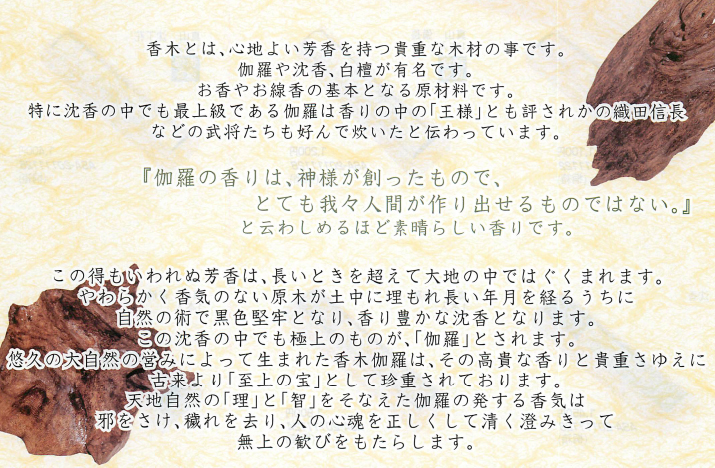 香木とは、心地よい芳香を持つ貴重な木材の事です。
伽羅や沈香、白檀が有名です。
お香やお線香の基本となる原材料です。
特に沈香の中でも最上級である伽羅は香りの中の「王様」とも評されかの織田信長
などの武将たちも好んで炊いたと伝わっています。
『伽羅の香りは、神様が創ったもので、
とても我々人間が作り出せるものではない。』
と云わしめるほど素晴らしい香りです。
この得もいわれぬ芳香は、長いときを超えて大地の中ではぐくまれます。
やわらかく香気のない原木が土中に埋もれ長い年月を経るうちに
自然の術で黒色堅牢となり、香り豊かな沈香となります。
この沈香の中でも極上のものが、「伽羅」とされます。
悠久の大自然の営みによって生まれた香木伽羅は、その高貴な香りと貴重さゆえに
古来より「至上の宝」として珍重されております。
天地自然の「理」と「智」をそなえた伽羅の発する香気は
邪をさけ、穢れを去り、人の心魂を正しくして清く澄みきって
無上の歓びをもたらします。